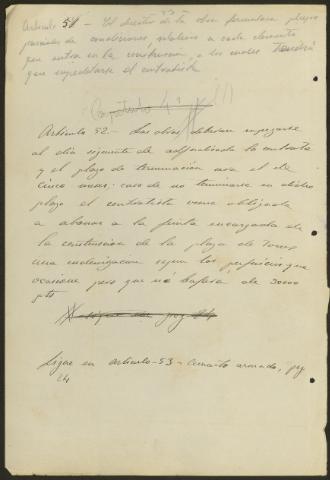 Artículo 51 - El director de la obra formulara pliegos
parciales de condiciones relativas a cada elemento
que entra en la construccion a los cuales tendrá
que sujetarse el contratista
Capitulo 4º
Articulo 52.- Las obras deberan empezarse
al dia siguiente de adjudicada la contrata
y el plazo de terminación sera el de
cinco meses; caso de no terminarse en dicho
plazo el contratista viene obligado
a abonar a la junta encargada de
la construccion de la plaza de Toros
una indemnizacion segun los perjuicios que
ocasione pero que no bajará de 30000
pts
Sigue en articulo-53- Cemento armado, pag
24